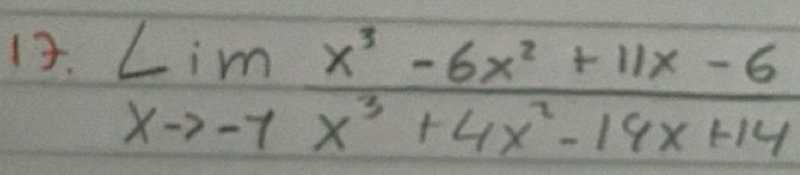 17. Lim x³ - 6x² + 11x - 6
x->-7 x³ + 4x² - 19x + 14